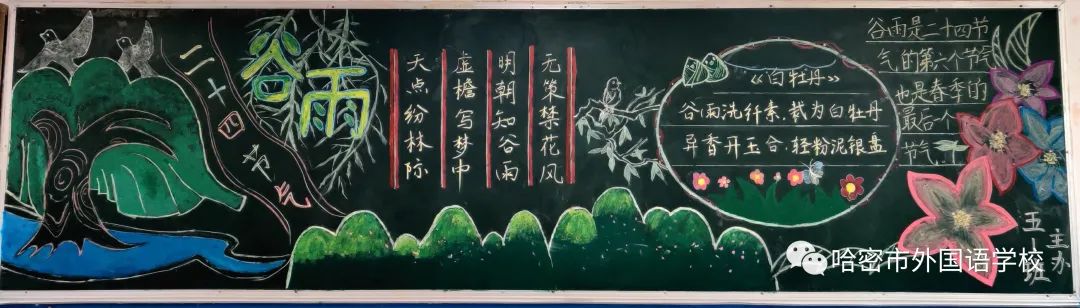 二十四节气
谷雨
天点纷林际
虚檐写梦中
明朝知谷雨
无策禁花风
《白牡丹》
谷雨洗纤素,裁为白牡丹
异香开玉合,轻粉泥银
谷雨是二十四节
气的第六个节气
也是春季的
最后一个
节气
五 班
主办
哈密市外国语学校